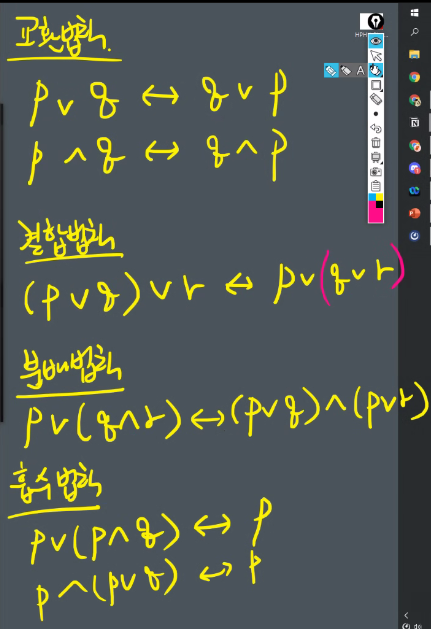 교환법칙.
p ∨ q ↔ q ∨ p
p ∧ q ↔ q ∧ p
결합법칙
(p ∨ q) ∨ r ↔ p ∨ (q ∨ r)
분배법칙
p ∨ (q ∧ r) ↔ (p ∨ q) ∧ (p ∨ r)
흡수법칙
p ∨ (p ∧ q) ↔ p
p ∧ (p ∨ q) ↔ p